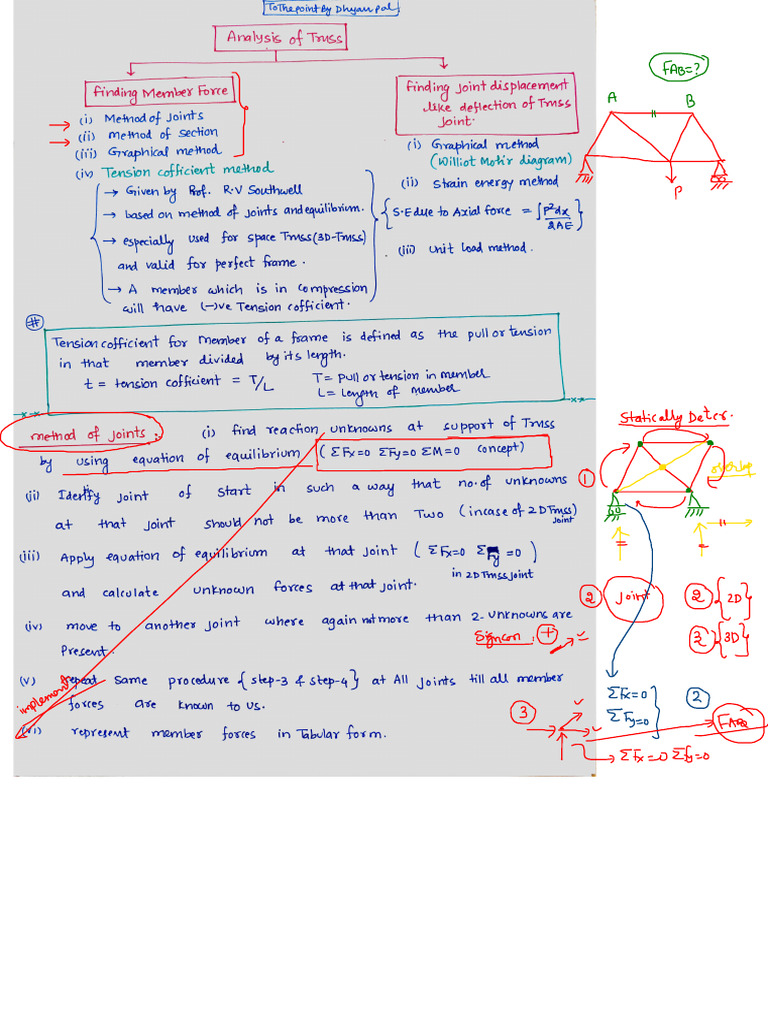 ToThepoint By Dhyan pal
Analysis of Truss
Finding Member Force
(i) Method of Joints
(ii) method of Section
(iii) Graphical method
(iv) Tension cofficient method
→ Given by Prof. R.V Southwell
→ based on method of joints and equilibrium.
→ especially used for space Truss (3D-Truss)
and valid for perfect frame.
→ A member which is in compression
will have (-)ve Tension cofficient.
Finding joint displacement
like deflection of Truss
Joint.
(i) Graphical method
(Williot Mohir diagram)
(ii) Strain energy method
{ S.E due to Axial force = ∫ P²dx / 2AE }
(iii) Unit load method.
FAB=?
A B
P
#
Tension cofficient for member of a frame is defined as the pull or tension
in that member divided by its length.
t = tension cofficient = T/L T = Pull or tension in member
L = length of member
method of joints: (i) find reaction unknowns at support of Truss
by using equation of equilibrium ( ΣFx=0 ΣFy=0 ΣM=0 concept)
(ii) Identify joint of start in such a way that no. of unknowns
at that joint should not be more than Two (incase of 2D Truss)
joint
(iii) Apply equation of equilibrium at that joint ( ΣFx=0 ΣFy=0 )
in 2D Truss joint
and calculate unknown forces at that joint.
(iv) move to another joint where again not more than 2-unknowns are
Present.
Signcon. +
(v) repeat same procedure {step-3 & step-4} at All joints till all member
forces are known to us.
implement
(vi) represent member forces in Tabular form.
Statically Deter.
1
overlap
2 Joint 2 {2D}
3 {3D}
ΣFx=0
ΣFy=0
2
3
ΣFx=0 ΣFy=0